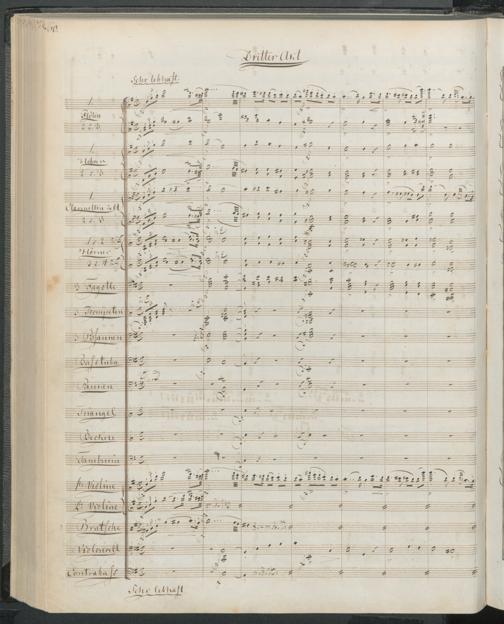 Dritter Act
Sehr lebhaft.
1.
Flöten
2 u. 3.
1.
Hoboen
2 u. 3.
1.
2 u. 3.
1 u. 2
Hörner
3 u. 4
3 Fagotte
3 Trompeten
3 Posaunen
Basstuba
Pauken
Triangel
Becken
Tamburin
1te Violine
2te Violine
Bratsche
Violoncell
Contrabass
Sehr lebhaft